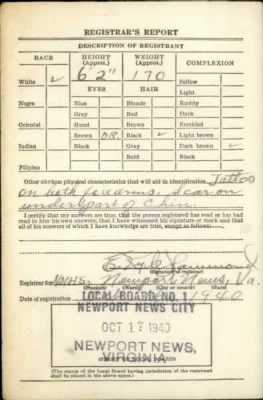 REGISTRAR'S REPORT
DESCRIPTION OF REGISTRANT
RACE HEIGHT (Approx.) WEIGHT (Approx.) COMPLEXION
White ✓ 6'2" 170 Sallow
EYES HAIR Light
Negro Blue Blonde Ruddy
Gray Red Dark
Oriental Hazel Brown Freckled
Brown DR. Black ✓ Light brown
Indian Black Gray Dark brown ✓
Bald Black
Filipino
Other obvious physical characteristics that will aid in identification Tattoo
on both forearms. Scar on
under part of Chin.
I certify that my answers are true; that the person registered has read or has had
read to him his own answers; that I have witnessed his signature or mark and that
all of his answers of which I have knowledge are true, except as follows:
(Signature of registrar)
Registrar for NNHS. Newport News, Va.
(Precinct) (Ward) (City or county) (State)
Date of registration 1940
LOCAL BOARD NO. 1
NEWPORT NEWS CITY
OCT 17 1940
NEWPORT NEWS,
VIRGINIA
(STAMP OF LOCAL BOARD)
(The stamp of the Local Board having jurisdiction of the registrant
shall be placed in the above space.)